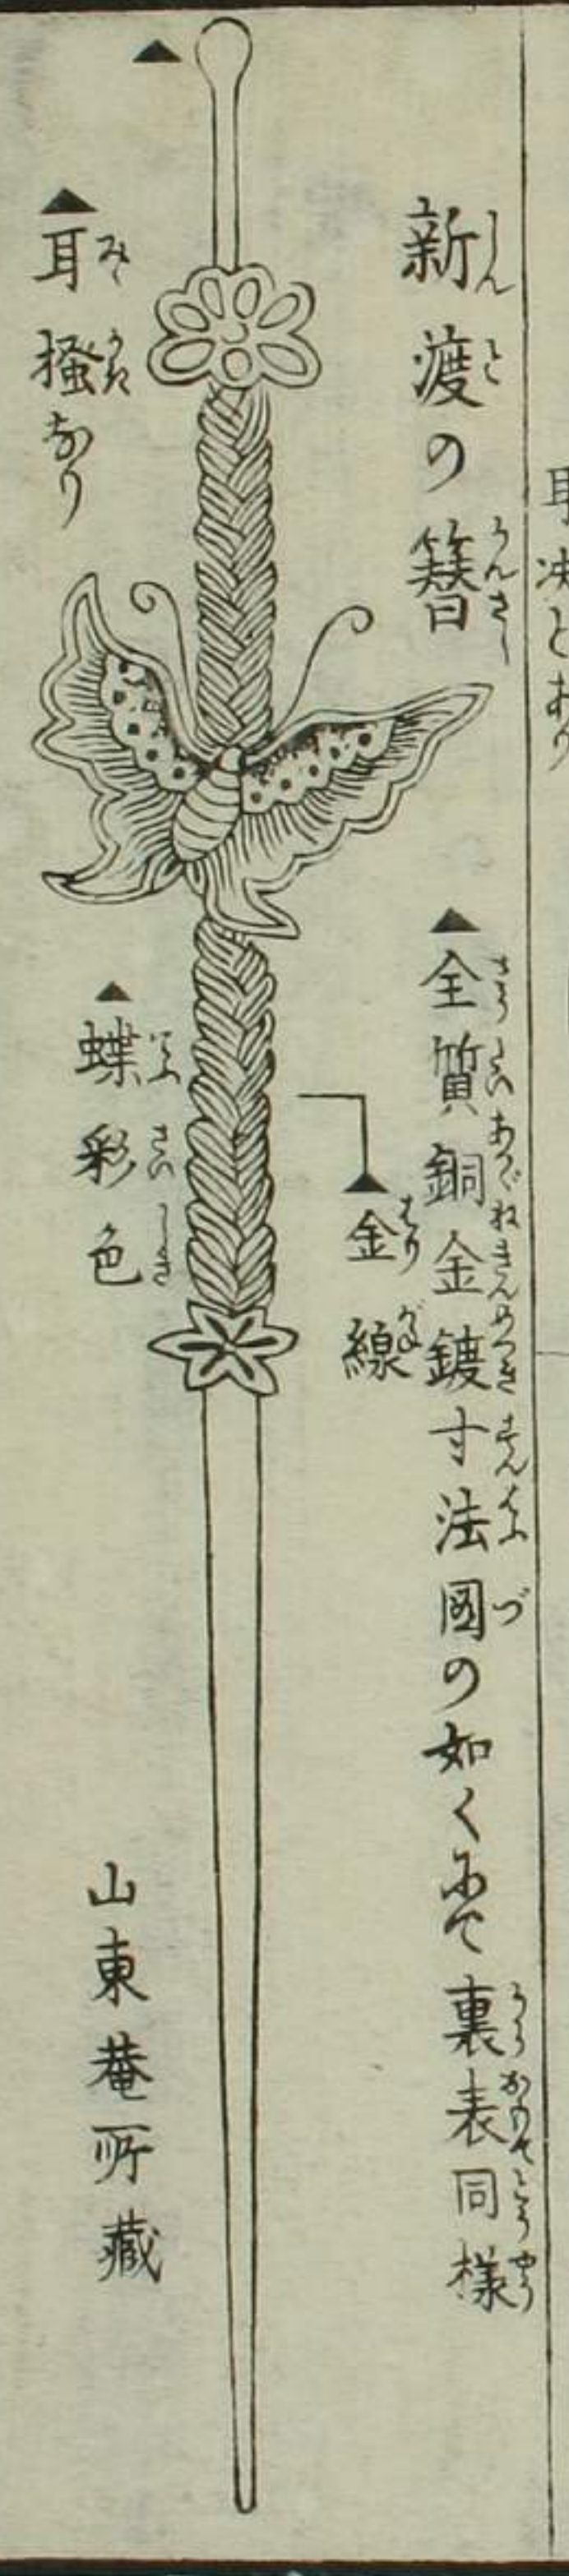 耳決とあり
新渡の簪
▲全質銅金鍍寸法図の如くにて裏表同様
▲金線
▲
▲耳掻なり
▲蝶彩色
山東菴所藏